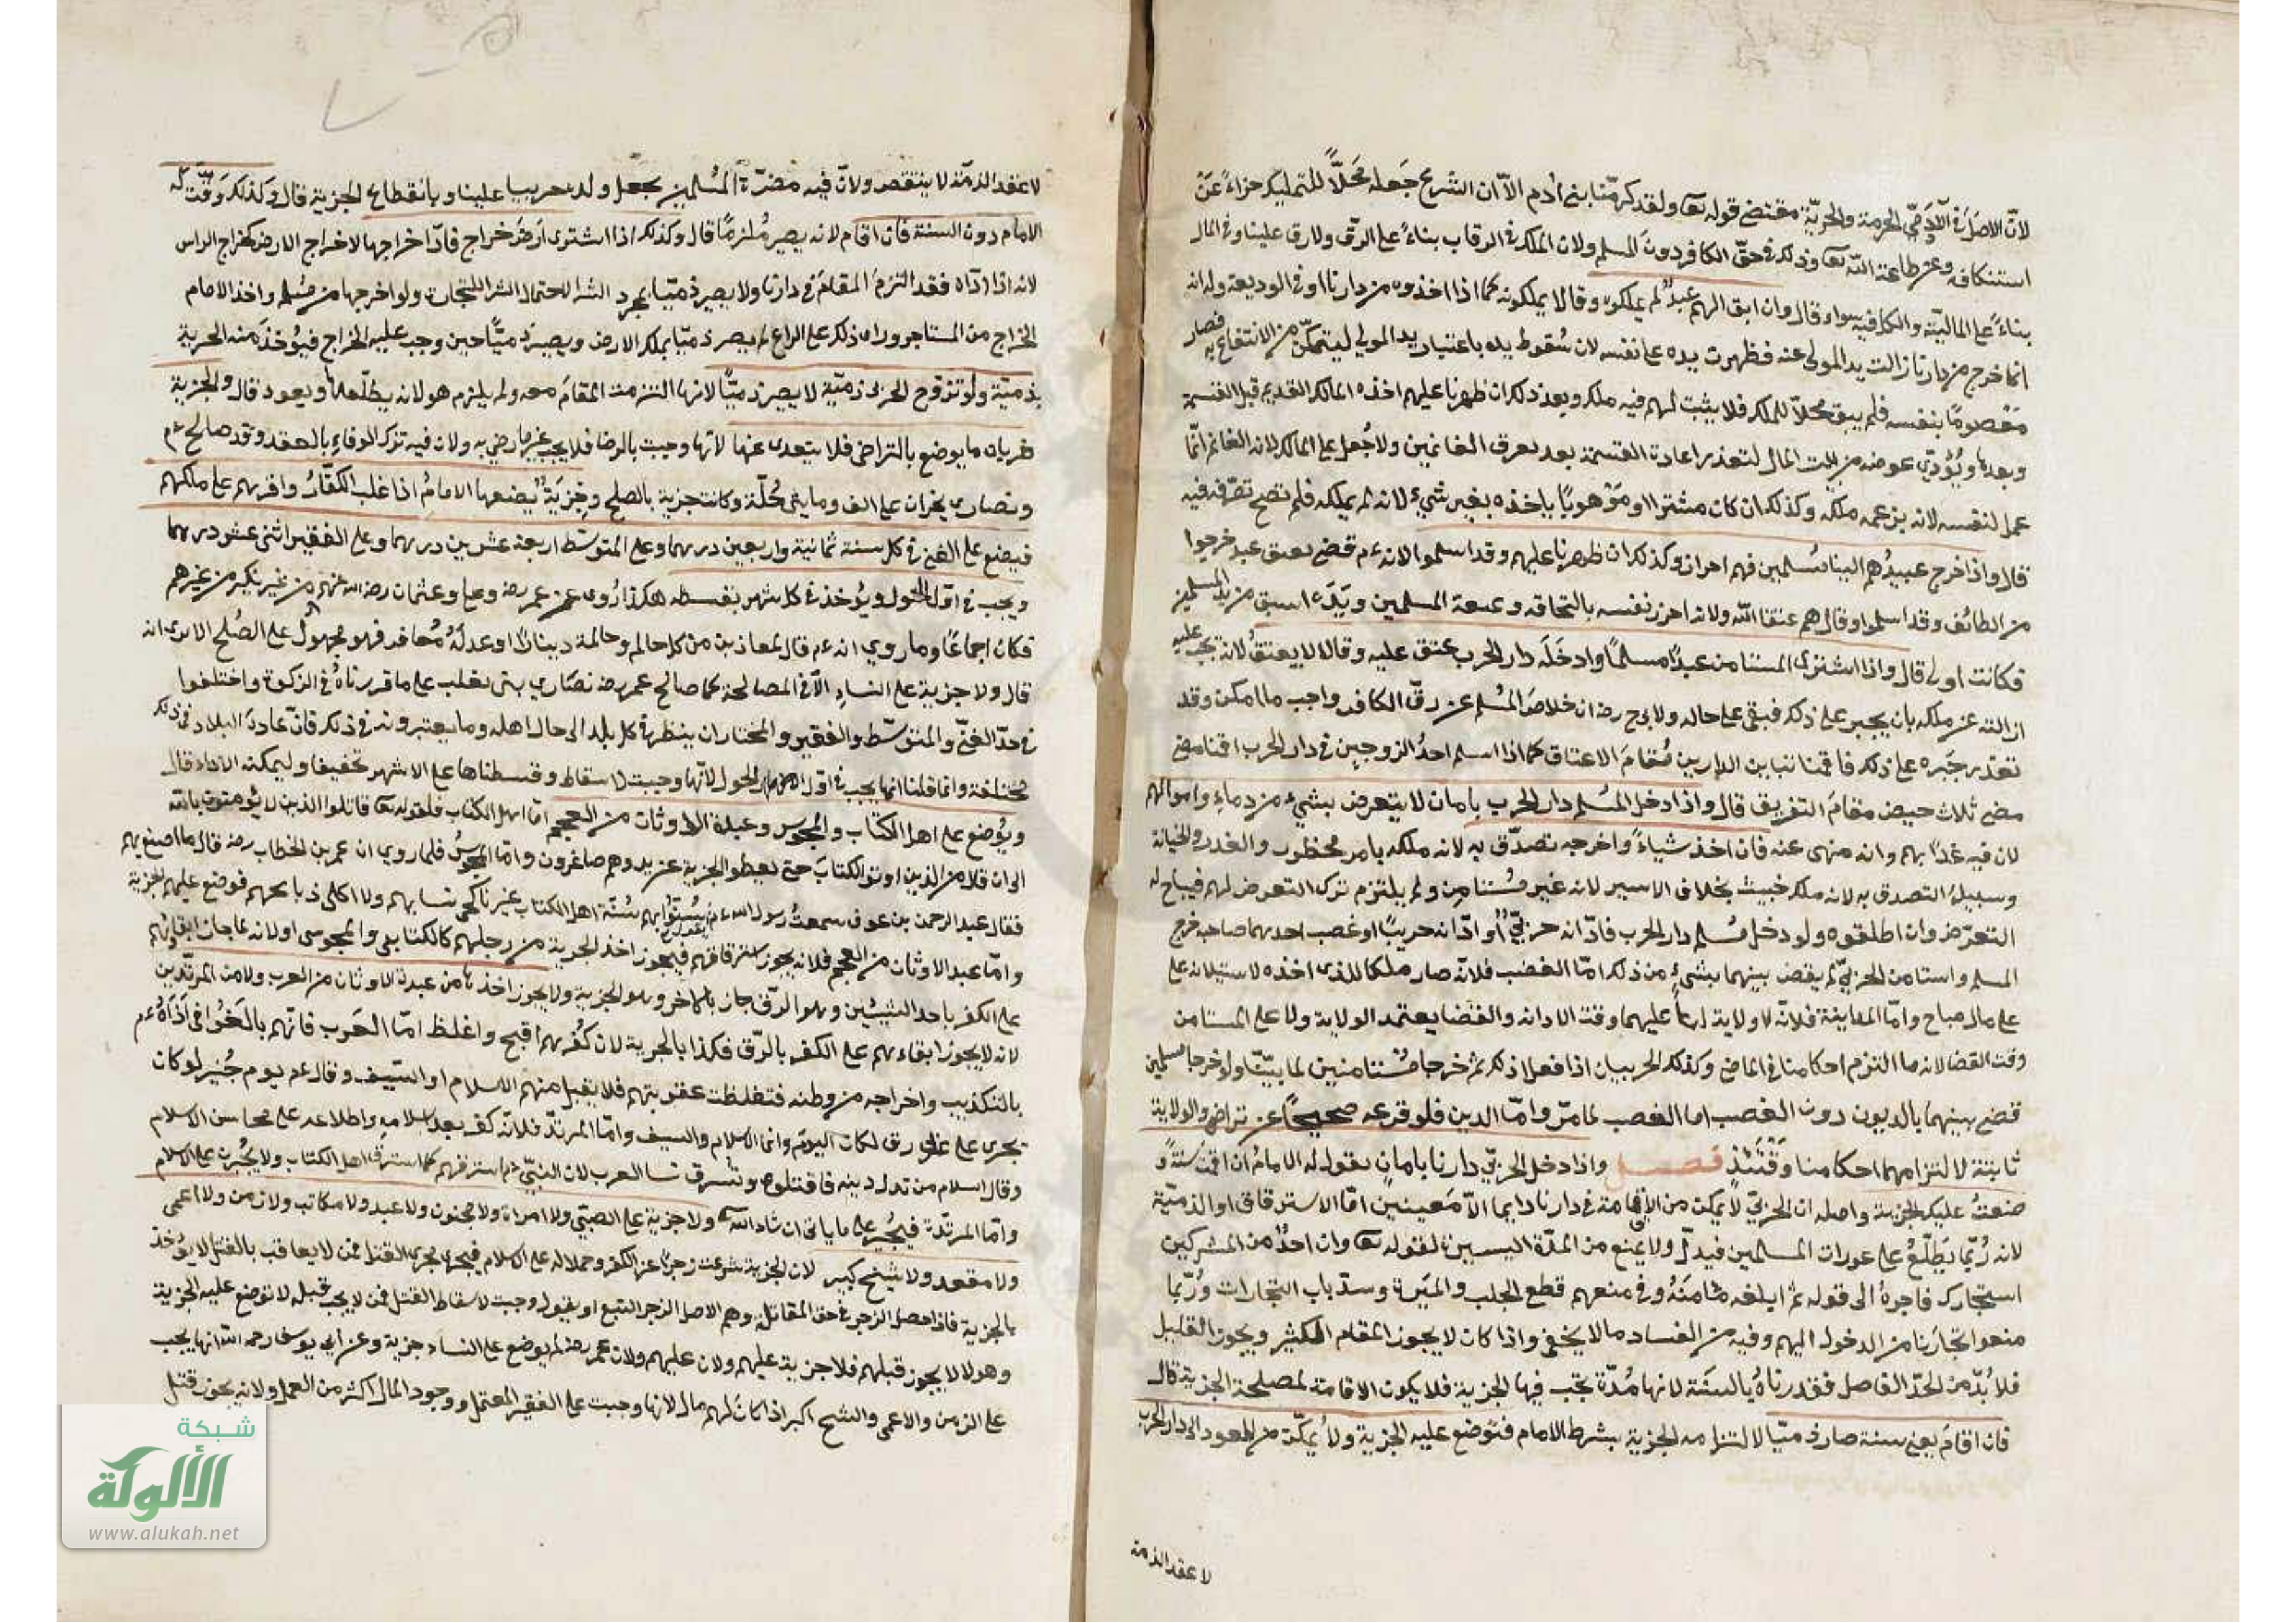 لانّ الاصل فى الآدمىّ الحرمة والحريّة مقتضى قوله تعا ولقد كرّمنا بنى آدم الاّ ان الشرع جعله محلاًّ للتمليك جزاءً عن
استنكافه وعن طاعة اللّه تعا وذلك فى حقّ الكافر دون المسلم ولان الملك فى الرقاب بناءً على الرقّ ولا رق علينا وفى المال
بناءً على الماليّة والكل فيه سواء قال وان ابق الهم عبدٌ لم يملكوه وقالا يملكونه كما اذا اخذوه من دارنا او فى الوديعة وله انه
انما خرج من دارنا زالت يد المولى عنه فظهرت يده على نفسه لان سُقوط يده باعتبار يد المولى ليتمكّن من الانتفاع به فصار
مَعْصومًا بنفسه فلم يبق محلاّ للملك فلا يثبت لهم فيه ملك وبعد ذلك ان ظهرنا عليهم اخذه المالك القديم قبل القسمة
وبعدها ويُؤدّى عوضه من بيت المال لتعذر اعادة القسمة بعد تعرق الغانمين ولا جُعل على المالك لانه الغانم انّما
عمل لنفسه لانه بزعمه ملكه وكذلك ان كان مشترا او مَوْهوبًا ياخذه بغير شىء لانه لم يملكه فلم تصح تصرّفه فيه
قال واذا خرج عبيدُهم الينا مُسلمين فهم احرار وكذلك ان ظهرنا عليهم وقد اسلموا لانه ءم قضى بعتق عبيد خرجوا
من الطائف وقد اسلموا وقال هم عتقا اللّه ولانه احرز نفسه بالتحاقه وعنعة المسلمين ويَدُه اسبق من يد المسلمين
فكانت اولى قال واذا اشترى المستامن عبدًا مسلمًا وادخَلَه دار الحرب عتق عليه وقالا لا يعتقُ لانه تجب عليه
ازالته عن ملكه بان يجبر على ذلك فبقى على حاله ولابى ح رضه ان خلاص المُسلم عن رقّ الكافر واجب ما امكن وقد
تعذر جَبره على ذلك فاقمنا تباين الدارين مُقامَ الاعتاق كما اذا اسلم احدُ الزوجين فى دار الحرب اقمنا مضى
مضى ثلاث حيض مقامَ التفريق قال واذا دخل المُسلم دار الحرب بامان لا يتعرض بشىء من دماء واموالهم
لان فيه غدًا بهم وانه منهى عنه فان اخذ شياءً واخرجه تصدّق به لانه ملكه بامر محظور والغدر والخيانة
وسبيلهُ التصدق به لانه ملك خبيث بخلاف الاسير لانه غير مُستامن ولم يلتزم ترك التعرض لهم فيباح له
التعرّض وان اطلقوه ولو دخل مُسلم دار الحرب فادّانه حربىٌّ او ادّانه حربيًا او غصب احدهما صاحبه خرج
المسلم واستامن الحربىّ لم يقض بينهما بشىء من ذلك امّا الغصب فلانّه صار ملكا للذى اخذه لاستيلائه على
على مال مباح وامّا المداينة فلانّه لا ولاية لنا عليهما وقت الادانه والقضا يعتمد الولاية ولا على المستامن
وقت القضا لانه ما التزم احكامنا فى الماضى وكذلك الحربيان اذا فعلا ذلك ثم خرجا مُستامنين لما بيّنّا ولو خرجا مسلمين
قضى بينهما بالديون دون الغصب اما الغصب لما مرّ وامّا الدين فلوقوعه صحيحًا عن تراض والولاية
ثابتة لالتزامهما احكامنا وَقْتَئذٍ فصل واذا دخل الحربىّ دارنا بامان يقول له الامام ان اقمتَ سَنةً
وضعتُ عليك الجزية واصله ان الحربىّ لا يمكن من الاقامة فى دارنا دايما الاّ مَعينين امّا الاسترقاق او الذمّية
لانه رُبّما يَطّلعُ على عورات المسلمين فيدلّ ولا يمنع من المدّة اليسيرة لقوله تعا وان احدٌ من المشركين
استجارك فاجرهُ الى قوله ثم ابلغه مَامَنَهُ وفى منعهم قطع الجلب والمَيرة وسدّ باب التجارات ورُبّما
منعوا تجارَنا من الدخول اليهم وفيه من الفساد ما لا يخفى واذا كان لا يجوز المقام الكثير ويجوز القليل
فلا بُدّ من الحدّ الفاصل فقدرناهُ بالسنَة لانها مُدّة تجب فيها الجزية فلا يكون الاقامة لمصلحة الجزية قال
فان اقامَ يعنى سنة صار ذميّا لالتزامه الجزية بشرط الامام فتوضع عليه الجزية ولا يُمكّن من العود الى دار الحرب
لا عقد الذمة
لا عقد الذمّة لا ينتقض ولانّ فيه مضرّة المُسلمين بجعل ولده حربيا علينا وبانقطاع الجزية قال وكذلك وَقّتَ له
الامام دون السنة فان اقام لانه يصير مُلتزمًا قال وكذلك اذا اشترى ارضَ خراج فادّا خراجها لا خراج الارض كخراج الراس
لانه اذا ادّاه فقد التزمَ المقام فى دارنا ولا يصير ذميّا بمجرد الشرا لاحتمال الشرا للتجارة ولو اخرجها من مُسلم واخذ الامام
الخراج من المستاجر وراى ذلك على الزراع لم يصر ذميّا بملك الارض ويصير ذميًّا حين وجب عليه الخراج فيؤخذ منه الجزية
بذميّة ولو تزوج الحربى ذميّة لا يصير ذميًّا لانها التزمت المقامَ معه ولم يلتزم هو لانه يطلّقها ويعود قال والجزية
ضربان ما يوضع بالتراضى فلا يتعدى عنها لانّها وجبت بالرضا فلا يجب غير ما رضى به ولان فيه ترك الوفاء بالعقد وقد صالح ءم
ونصارى نجران على الف ومايتى حُلّة وكانت جزية بالصلح وجزيَةٌ يضعها الامامُ اذا غلب الكفّارُ واقرهم على ملكهم
فيضع على الغنى فى كل سنة ثمانية واربعين درهما وعلى المتوسّط اربعة عشرين درهما وعلى الفقير اثنى عشر درهما
ويجب فى اوّل الحَول ويُؤخذ فى كل شهر بقسطه هكذا رُوى عن عمر رضه وعلى وعثمان رضه اللّه عنهم من غير نكير من غيرهم
فكان اجماعًا وما روي انه ءم قال لمعاذ بن من كل حالم وحالمة دينارًا او عدلَهُ مُعافر فهو مجهولٌ على الصُلح الا ترى انه
قال ولا جزية على النساء الاّ فى المصالحة كما صالح عمر رضه نصارى بنى تغلب على ما قررناهُ فى الزكوة واختلفوا
فى حدّ الغنىّ والمتوسّط والفقير والمختار ان ينظر فى كل بلد الى حال اهله وما يعتبرونه فى ذلك فانّ عادة البلاد فى ذلك
مُختلفة وانّما قلنا انها يجب فى اوّل الحول لانّها وجبت لاسقاط وقسطناها على الاشهر تخفيفا وليمكنه الاداء قال
ويُوضع على اهل الكتاب والمجوس وعبدة الاوثان من العجم امّا اهل الكتاب فلقوله تعا قاتلوا الذين لا يُومنون باللّه
الى ان قال من الذين اوتوا الكتابَ حتى يعطو الجزية عن يد وهم صاغرون وامّا المجوسُ فلما روي ان عمر بن الخطاب رضه قال ما اصنع بهم
فقال عبد الرحمن بن عوف سمعتُ رسول اللّه ءم سُنّوا بهم سُنّة اهل الكتاب غير ناكحى نسايهم ولا اكلى ذبايحهم فوضع عليهم الجزية
وامّا عبد الاوثان من العجم فلانه يجوز استرقاقهم فيجوز اخذ الجزية من رجلهم كالكتابى والمجوسى او لانه لما جاز ابقاؤهم
على الكفر باحد الشيئين وهو الرّق جاز بالاخر وهو الجزية ولا يجوز اخذها من عبدة الاوثان من العرب ولا من المرتدّين
لانه لا يجوز ابقاءهم على الكفر بالرّق فكذا بالجزية لان كُفرهم اقبح واغلظ امّا العَرب فانّهم بالَغُوا فى اَذَاهُ ءم
بالتكذيب واخراجه من وطنه فتغلظت عقوبتهم فلا يقبل منهم الا الاسلام او السّيف وقال ءم يوم حُنين لو كان
يجرى على عربى رق لكان اليوم وانما الاسلام والسيف وامّا المرتدّ فلانّه كفر بعد اسلامه واطلاعه على محاسن الاسلام
وقال اسلام من بدل دينه فاقتلوه وتُسرق نسا العرب لان النبىّ ءم استرقهم كما استرق اهل الكتاب ولا يُجبرن على الاسلام
وامّا المرتدّة فيُجبر على ما ياتى ان شاء اللّه تعا ولا جزية على الصبّى ولا امراة ولا مجنون ولا عبد ولا مكاتب ولا زمن ولا اعمى
ولا مقعد ولا شيخ كبير لان الجزية شرعت زجرًا عن الكفر وحملا له على الاسلام فيجرى مجرى القتل فمن لا يعاقب بالقتل لا يؤخذ
بالجزية فاذا حصل الزجر فى حق المقاتلة وهم الاصل انزجر التبع او يقول وجبت لاسقاط القتل فمن لا يجب قتله لا توضع عليه الجزية
وهولا لا يجوز قتلهم فلا جزية عليهم ولان عليهم ولان عمر رضه لم يوضع على النساء جزية وعن ابى يوسف رحمه اللّه انها يجب
على الزمن والاعمى والشيخ اكبر اذا كان لهم مال لانها وجبت على الفقير المعتمل ووجود المال اكثر من العمل ولانه يجوز قتل
شبكة
الألوكة
www.alukah.net